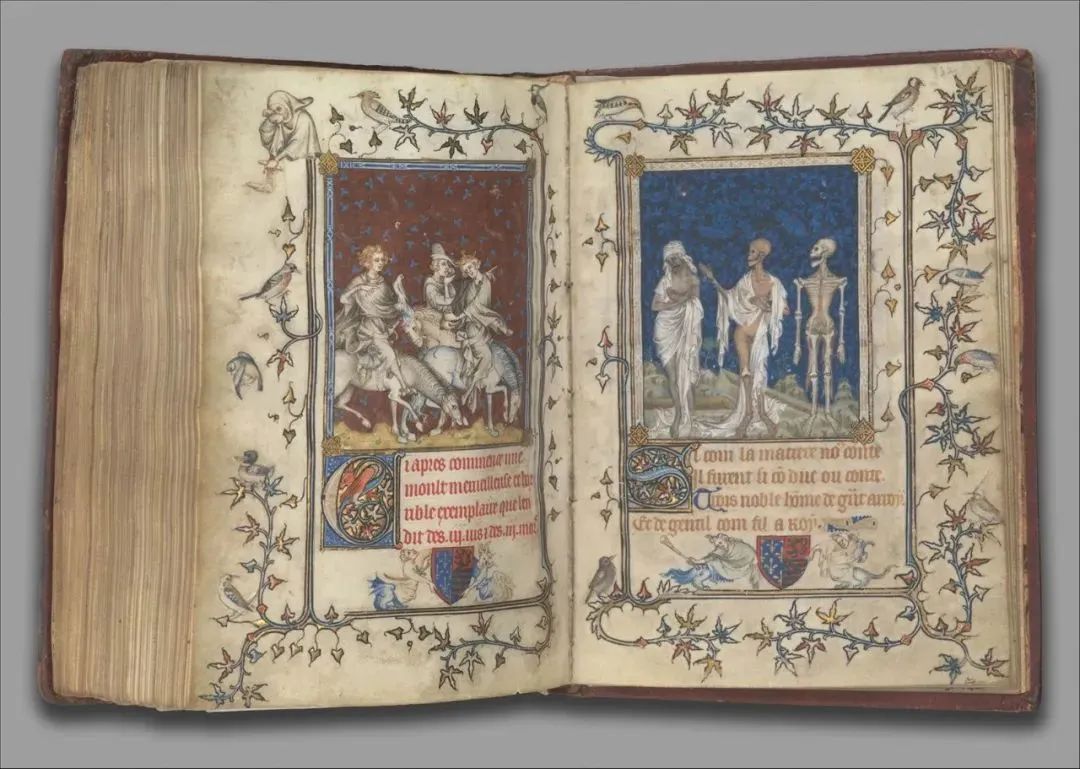 Ci apres commence une
moult merveilleuse et hor
rible exemplaire que len
dit des .iij. vis ⁊ des .iij. mors.
Si com la matiere no conte
Il furent si cō duc ou conte.
Trois noble hōme de
Et de gentil com fil a Roy.